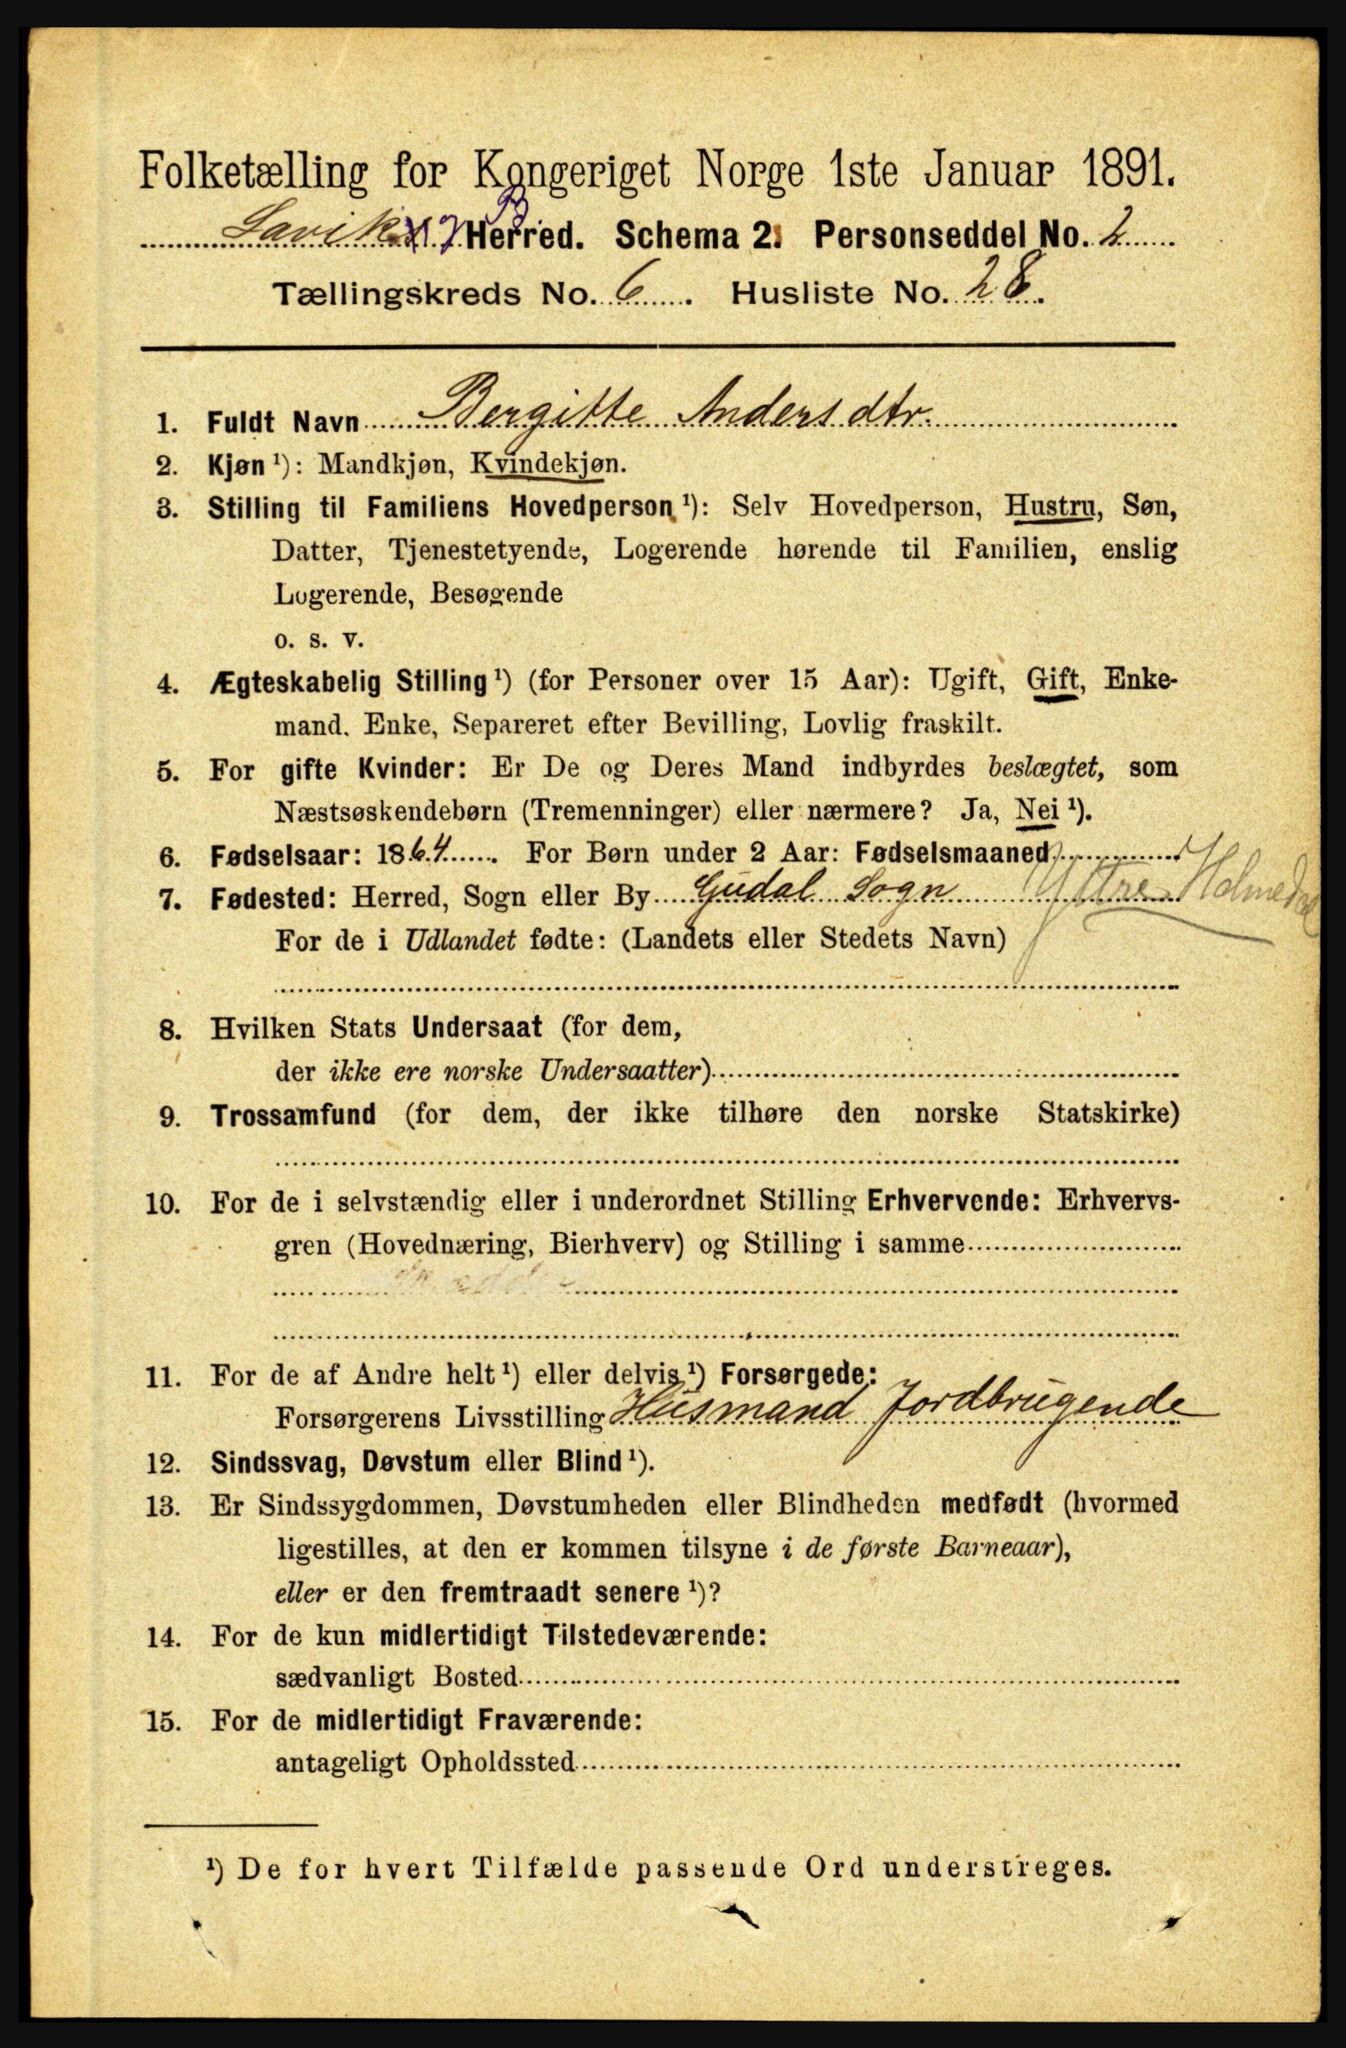 Folketælling for Kongeriget Norge 1ste Januar 1891.
Lavik og B Herred. Schema 2. Personseddel No. 2
Tællingskreds No. 6. Husliste No. 28.
1. Fuldt Navn Bergitte Andersdtr.
2. Kjøn ¹): Mandkjøn, Kvindekjøn.
3. Stilling til Familiens Hovedperson ¹): Selv Hovedperson, Hustru, Søn,
Datter, Tjenestetyende, Logerende hørende til Familien, enslig
Logerende, Besøgende
o. s. v.
4. Ægteskabelig Stilling ¹) (for Personer over 15 Aar): Ugift, Gift, Enke-
mand, Enke, Separeret efter Bevilling, Lovlig fraskilt.
5. For gifte Kvinder: Er De og Deres Mand indbyrdes beslægtet, som
Næstsøskendebørn (Tremenninger) eller nærmere? Ja, Nei ¹).
6. Fødselsaar: 1864. For Børn under 2 Aar: Fødselsmaaned
7. Fødested: Herred, Sogn eller By Gudal Sogn Yttre Holmedal
For de i Udlandet fødte: (Landets eller Stedets Navn)
8. Hvilken Stats Undersaat (for dem,
der ikke ere norske Undersaatter)
9. Trossamfund (for dem, der ikke tilhøre den norske Statskirke)
10. For de i selvstændig eller i underordnet Stilling Erhvervende: Erhvervs-
gren (Hovednæring, Bierhverv) og Stilling i samme
11. For de af Andre helt ¹) eller delvis ¹) Forsørgede:
Forsørgerens Livsstilling Husmand Jordbrugende
12. Sindssvag, Døvstum eller Blind ¹).
13. Er Sindssygdommen, Døvstumheden eller Blindheden medfødt (hvormed
ligestilles, at den er kommen tilsyne i de første Barneaar),
eller er den fremtraadt senere ¹)?
14. For de kun midlertidigt Tilstedeværende:
sædvanligt Bosted
15. For de midlertidigt Fraværende:
antageligt Opholdssted
¹) De for hvert Tilfælde passende Ord understreges.